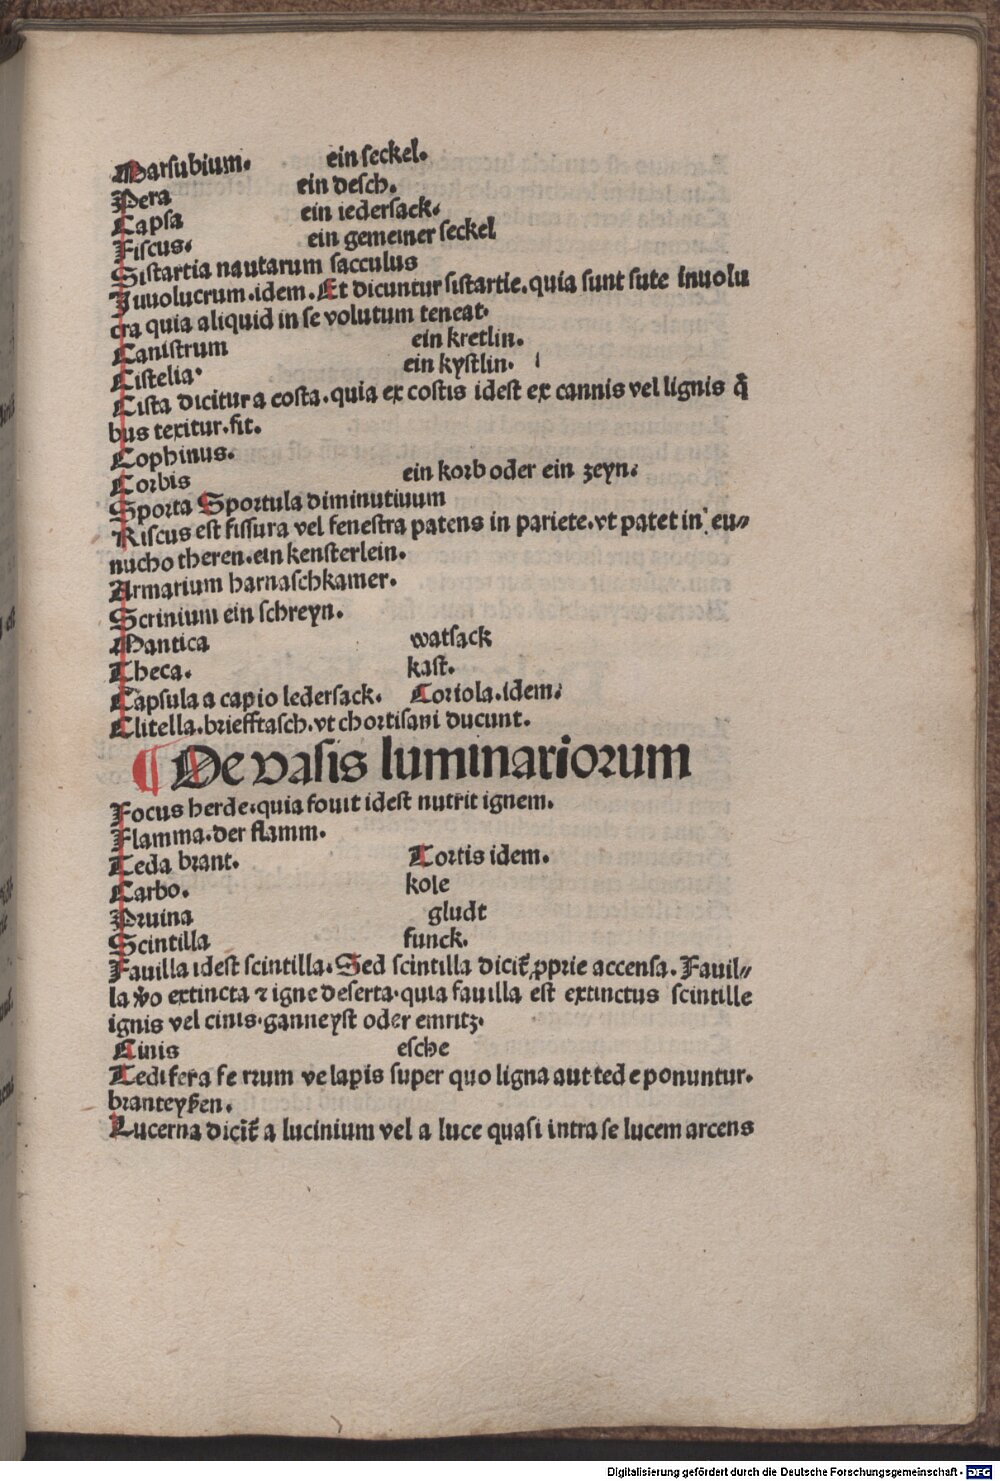 Marsubium. ein seckel.
Pera ein desch.
Capsa ein iedersack.
Fiscus. ein gemeiner seckel
Sistartia nautarum sacculus
Inuolucrum.idem. Et dicuntur sistartie.quia sunt sute inuolu
cra quia aliquid in se volutum teneat.
Canistrum ein kretlin.
Cistelia. ein kystlin.
Cista dicitur a costa.quia ex costis idest ex cannis vel lignis q̄
bus texitur.fit.
Cophinus.
Corbis ein korb oder ein zeyn.
Sporta Sportula diminutiuum
Riscus est fissura vel fenestra patens in pariete.vt patet in eu⸗
nucho theren.ein kensterlein.
Armarium harnaschkamer.
Scrinium ein schreyn.
Mantica watsack
Theca. kast.
Capsula a capio ledersack. Coriola.idem.
Clitella.briefftasch.vt chortisani ducunt.
¶ De vasis luminariorum
Focus herde.quia fouit idest nutrit ignem.
Flamma.der flamm.
Teda brant. Tortis idem.
Carbo. kole
Pruina gludt
Scintilla funck.
Fauilla idest scintilla. Sed scintilla dicit̄ ꝓprie accensa. Fauil⸗
la v̄o extincta ⁊ igne deserta.quia fauilla est extinctus scintille
ignis vel cinis.ganneyst oder emritz.
Cinis esche
Tedifera fe rrum ve lapis super quo ligna aut ted e ponuntur.
branteyßen.
Lucerna dicit̄ a lucinium vel a luce quasi intra se lucem arcens
Digitalisierung gefördert durch die Deutsche Forschungsgemeinschaft - DFG